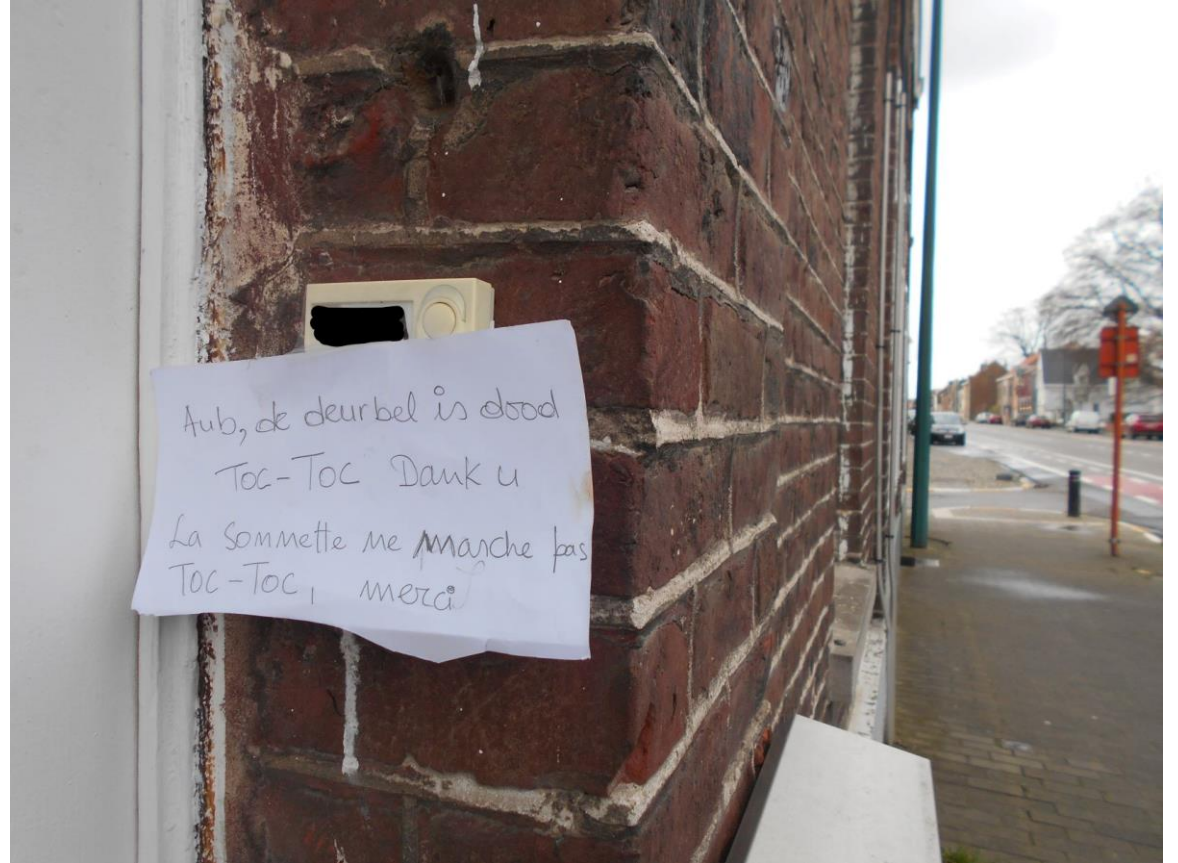 Aub, de deurbel is dood
Toc-Toc Dank u
La sonnette ne marche pas
Toc-Toc, merci